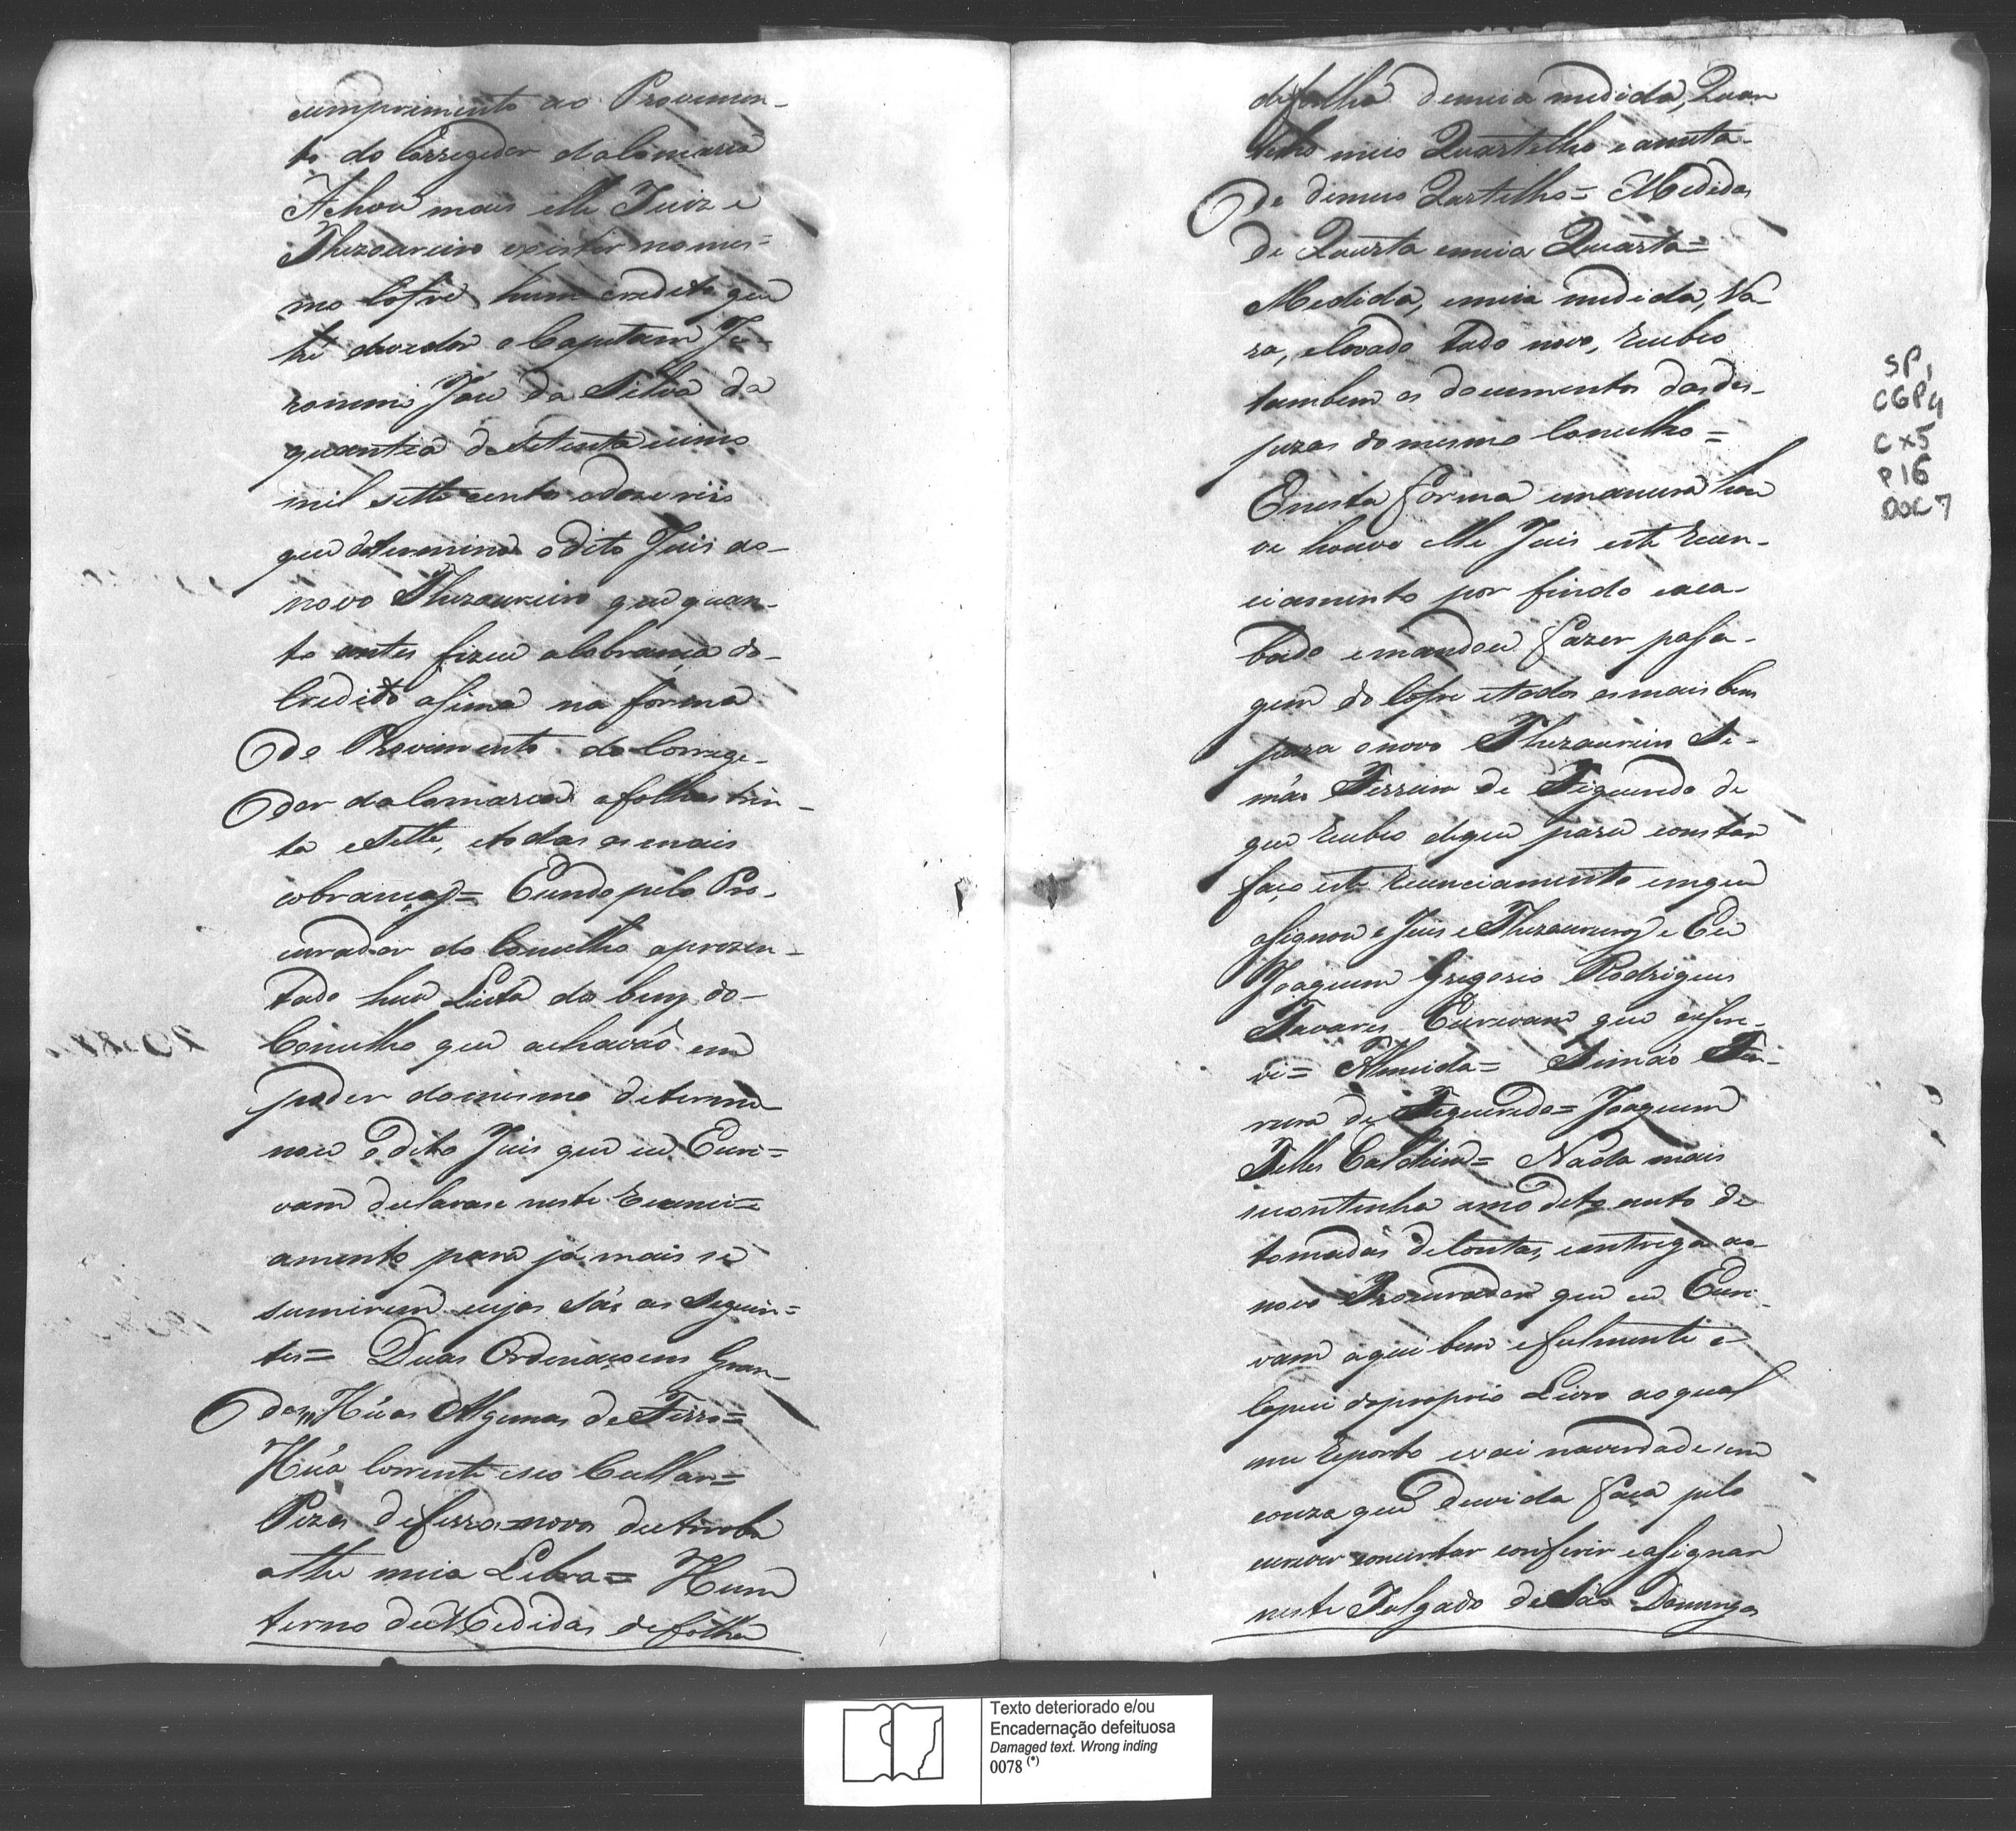 cumprimento ao Provimen-
to do Corregedor da Comarca
Achou mais elle Juiz e
Thezoureiro existir no mes=
mo Cofre hum credito que
hé devedor o Capitam Je-
ronimo Joze da Silva da
quantia de setenta e cinco
mil sette centos e doze reis
que determinou o dito Juis ao-
novo Thezoureiro que quan-
to antes fizece a Cobrança do-
Credito asima na forma
do Provimento do Correge-
dor da Comarca a folhas trin-
ta e sette, e todas as mais
cobranças= E sendo pelo Pro-
curador do Concelho aprezen-
tado huã Lista do bens do-
Concelho que achavaõ em
poder do mesmo determi-
nou o dito Juis que eu Escri=
vam declarase neste Recenci=
amento para já mais se
sumirem cujos sáo os seguin=
tes= Duas Ordenaçoens Gran
des, Húas Algemas de Ferro=
Húa Corrente e seo Collar=
Pezos de ferro novos de Arroba
athe meia Libra= Hum
terno de Medidas de folha
de folha de meia medida, Quar
tilho meio Quartilho e ameta-
de de meio Quartilho= Medidas
de Quarta e meia Quarta=
Medida, e meia medida, Va-
ra, e Covado tudo novo, Recebeo
tambem os documentos das des-
pezas do mesmo Concelho=
E nesta forma e maneira hou
ve houve elle Juis este Recen-
ciamento por findo e aca-
bado e mandou fazer pasa-
gem do Cofre e todos os mais bens
para o novo Thezoureiro Si-
máo Ferreira de Figueiredo de
que Recebeo de que para constar
faço este Recenciamento em que
asignou o Juis e Thezoureiros e Eu
Joaquim Gregorio Rodrigues
Tavares Escrivam que escre-
vi= Almeida= Simáo Fer-
reira de Figueiredo= Joaquim
Telles Caldeira= Nada mais
se continha em o dito auto de
tomadas de Contas, e entrega ao-
novo Procurador que eu Escri-
vam aqui bem e fielmente e
Copiei do proprio Livro ao qual
me Reporto e vai na verdade sem
couza que duvida faça pelo
escrever concertar conferir e asignar
neste Julgado de Sáo Domingos
SP,
CGP4
CX5
P16
DOC7
Texto deteriorado e/ou
Encadernação defeituosa
Damaged text. Wrong inding
0078 (*)